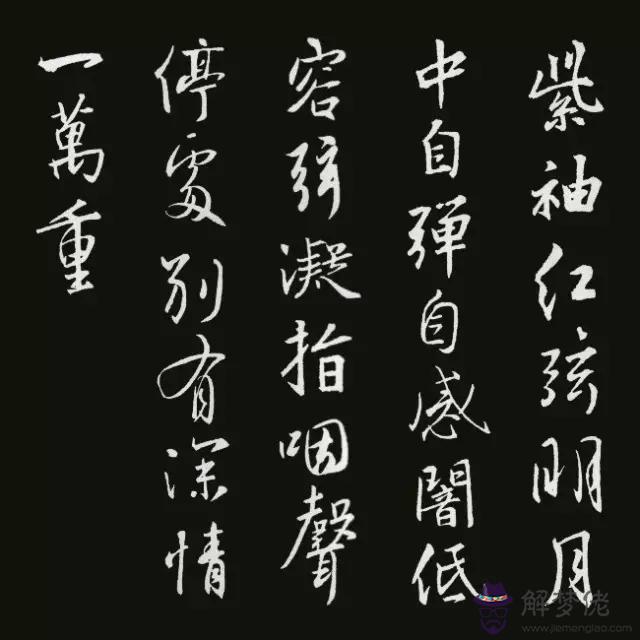 紫袖红弦明月
中自弹自感闇低
容弦凝指咽聲
停處别有深情
一萬重
解梦佬
www.jiemenglao.com